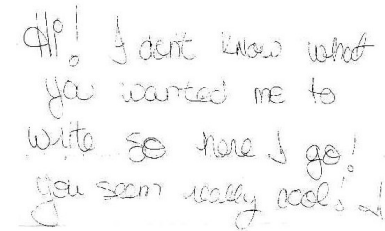 Hi! I don't know what
you wanted me to
write so here I go!
you seem really cool!